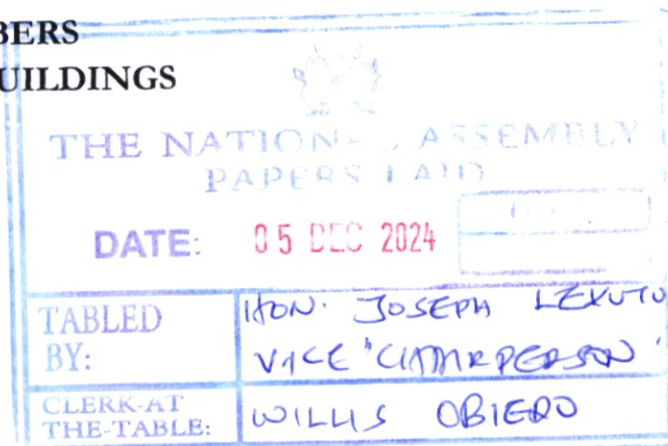 BERS
UILDINGS
THE NATIONAL ASSEMBLY
PAPERS LAID
DATE: 05 DEC 2024
TABLED BY: HON. JOSEPH LEKUTO
VICE CHAIRPERSON
CLERK-AT THE-TABLE: WILLIS OBIERO